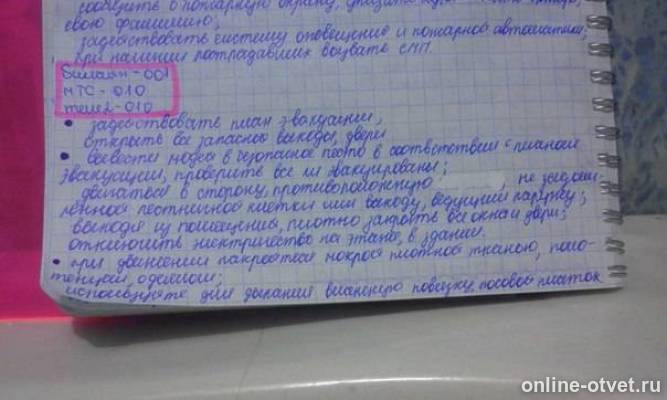 сообщить в пожарную охрану, указать
свою фамилию;
задействовать систему оповещения и пожарной автоматики;
при наличии пострадавших вызвать СМП.
Билайн - 001
МТС - 010
теле2 - 010
• задействовать план эвакуации,
открыть все запасные выходы, двери
• вывести людей в безопасное место в соответствии с планом
эвакуации, проверить все ли эвакуированы;
двигаться в сторону, противоположную , не задым-
лённой лестничной клетки или выходу, ведущий наружу;
выходя из помещения, плотно закрыть все окна и двери;
отключить электричество на этаже, в здании.
• при движении накроятся мокрой плотной тканью, поло-
тенцем, одеялом;
используйте для дыхания влажную повязку, носовой платок
online-otvet.ru